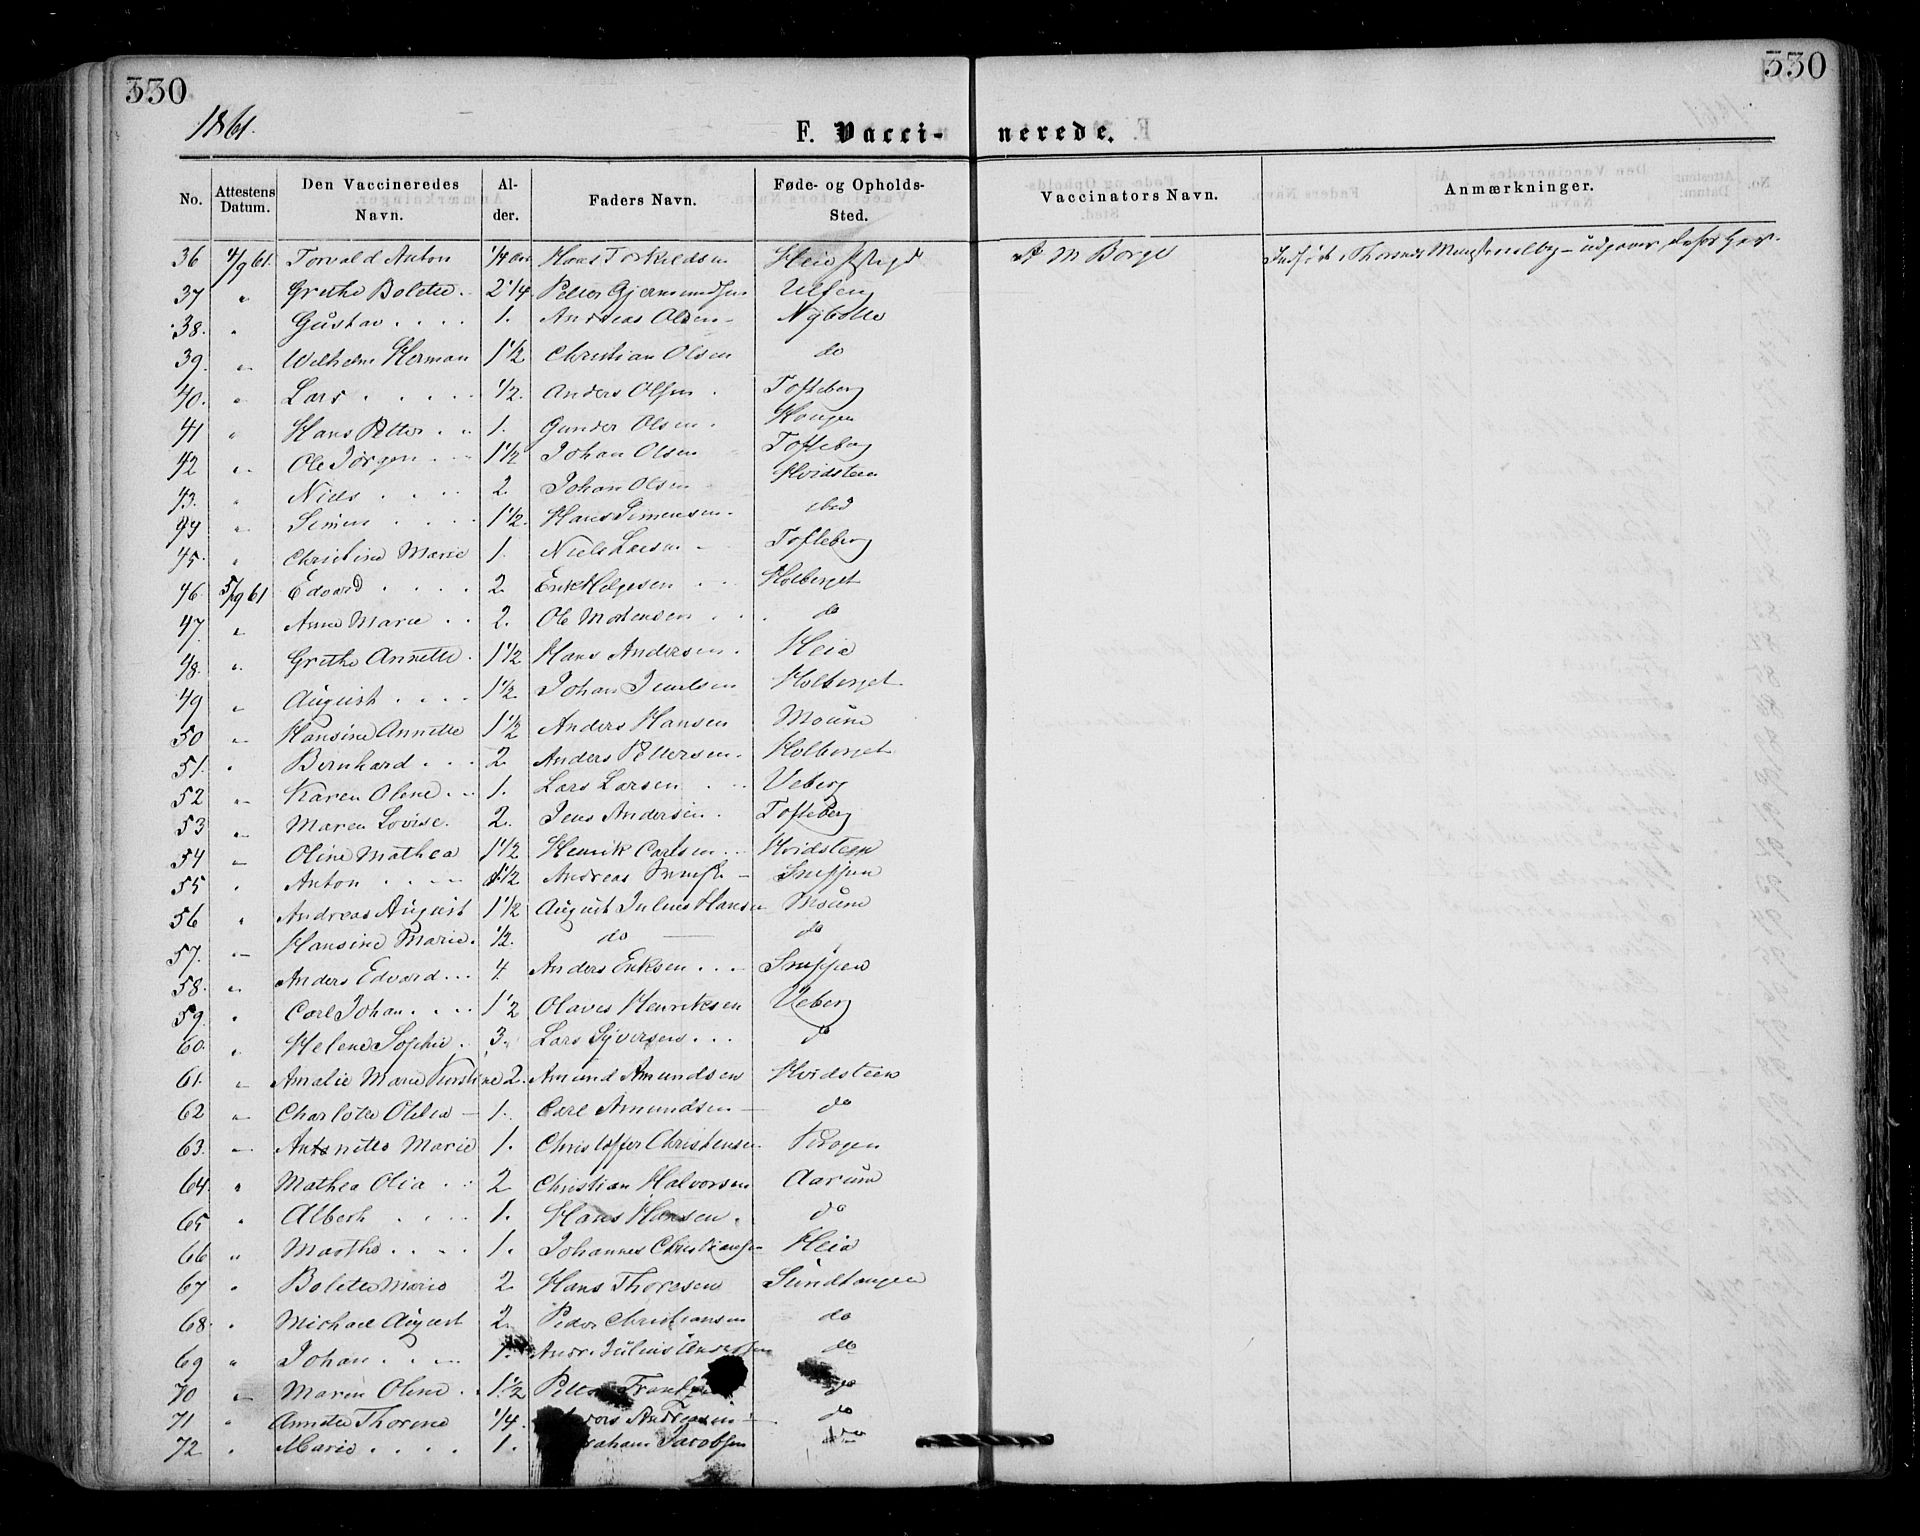 330 330
1861.
F. Vacci- nerede.
No. Attestens Datum. Den Vaccineredes Navn. Al- der. Faders Navn. Føde- og Opholds- Sted. Vaccinators Navn. Anmærkninger.
36 4/9 61. Torvald Anton 1/4 Hans Torkildsen Heie A M Borge
37 " Grethe Bolette. 2 1/4 Petter Gjermundsen Ulfeng
38. " Gustav . . . . 1. Andreas Olsen Nybølle
39. " Wilhelm Herman 1 1/2 Christian Olsen do
40. " Lars . . . . . 1/2. Anders Olsen . Tofteberg
41 " Hans Petter . . 1. Gunder Olsen . Hougen
42 " Ole Jørgen . . . 1 1/2 Johan Olsen Tofteberg
43. " Niels . . . . 2. Johan Olsen Hvidsteen
44 " Simen . . . . 1 1/2. Hans Simensen . ibid
45. " Christine Marie 1. Niels Larsen Tofteberg
46. 5/9 61 Edvard . . . . 2. Erik Helgesen . . . Holberget
47. " Anne Marie . . 2. Ole Mortensen . . . . do
48. " Grethe Annette. 1 1/2 Hans Andersen . Heie
49 " August . . . . 1 1/2. Johan Holberget
50 " Hansine Annette 1 1/2 Anders Hansen Moum
51. " Bernhard . . . 2. Anders Pettersen . Holberget
52 " Karen Oline . . 1. Lars Larsen . . . Veberg
53 " Maren Lovise. 2. Jens Andersen . Tofteberg
54 " Oline Mathea 1 1/2 Henrik Carlsen . . Hvidsteen
55 " Anton . . . . 1 1/2 Andreas Snippen
56 " Andreas August 1 1/2 August Julius Hansen Moum
57. " Hansine Marie. 1/2. do do
58. " Anders Edvard . . . 4. Anders Eriksen . . . Snippen
59. " Carl Johan . . . . 1 1/2 Olaves Henriksen Veberg
60. " Helene Sophie . 3. Lars Syversen . . . do
61. " Amalie Marie Kirstine 2. Amund Amundsen Hvidsteen
62 " Charlotte Oldea 1. Carl Amundsen do
63. " Antonette Marie 1. Christoffer Christensen Krogen
64. " Mathea Olia . . 2 Christian Halvorsen Aarum
65 " Albert . . . . 1. Hans Hansen . do
66 " Marthe . . . . 1. Johannes Christiansen Heie
67 " Bolette Marie 2 Hans Thoresen Sundtangen
68. " Michael August 2. Peder Christiansen do
69 " Johan . . . . 1. Andr. Julius Andersen do
70 " Maren Oline . . 1 1/2 Petter do
71 " Annette Thorine 1/4. Andreasen do
72 " Marie . . . . 1. Jacobsen do